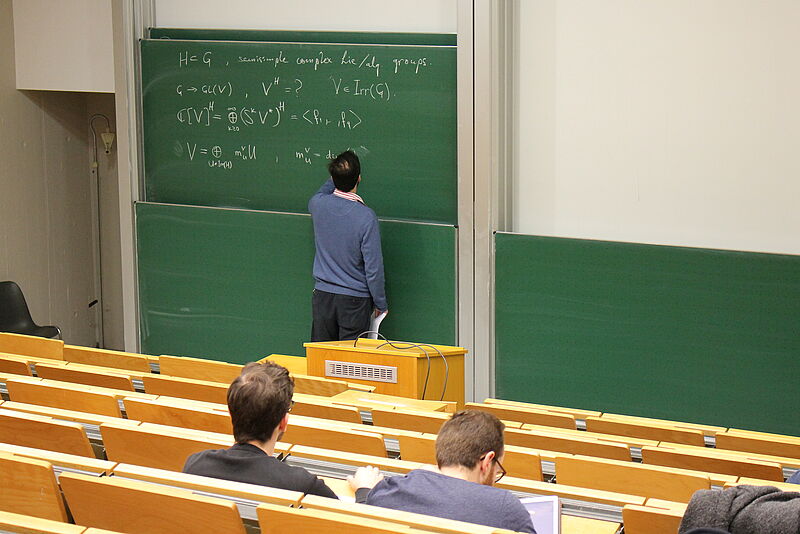 H ⊂ G , semisimple complex Lie/alg groups.
G → GL(V) , V^H = ? V ∈ Irr(G).
ℂ[V]^H = ⊕_{k≥0}^∞ (S^k V*)^H = ⟨f_1, .. , f_q⟩
V = ⊕_{U∈Irr(H)} m_U^V U , m_U^V = de